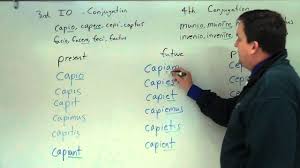 3rd IO - Conjugation
4th Conjugation
capio, capere, cepi, captus
munio, munire,
facio, facere, feci, factus
invenio, invenire,
present
future
capio
capiam
capis
capies
capit
capiet
capimus
capiemus
capitis
capietis
capiunt
capient